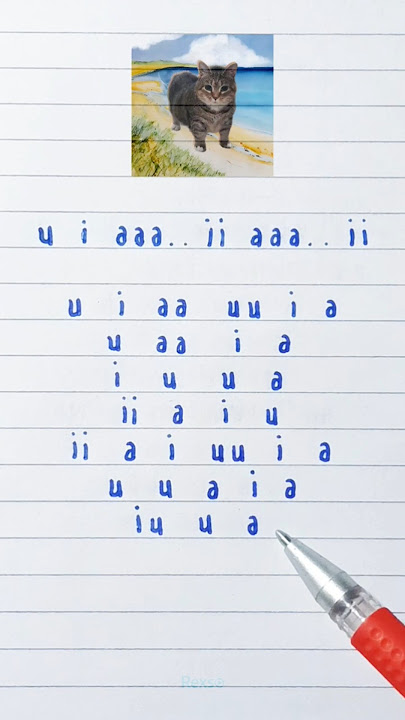 u i aaa.. ii aaa.. ii
u i aa uu i a
u aa i a
i u u a
ii a i u
ii a i uu i a
u u a i a
iu u a